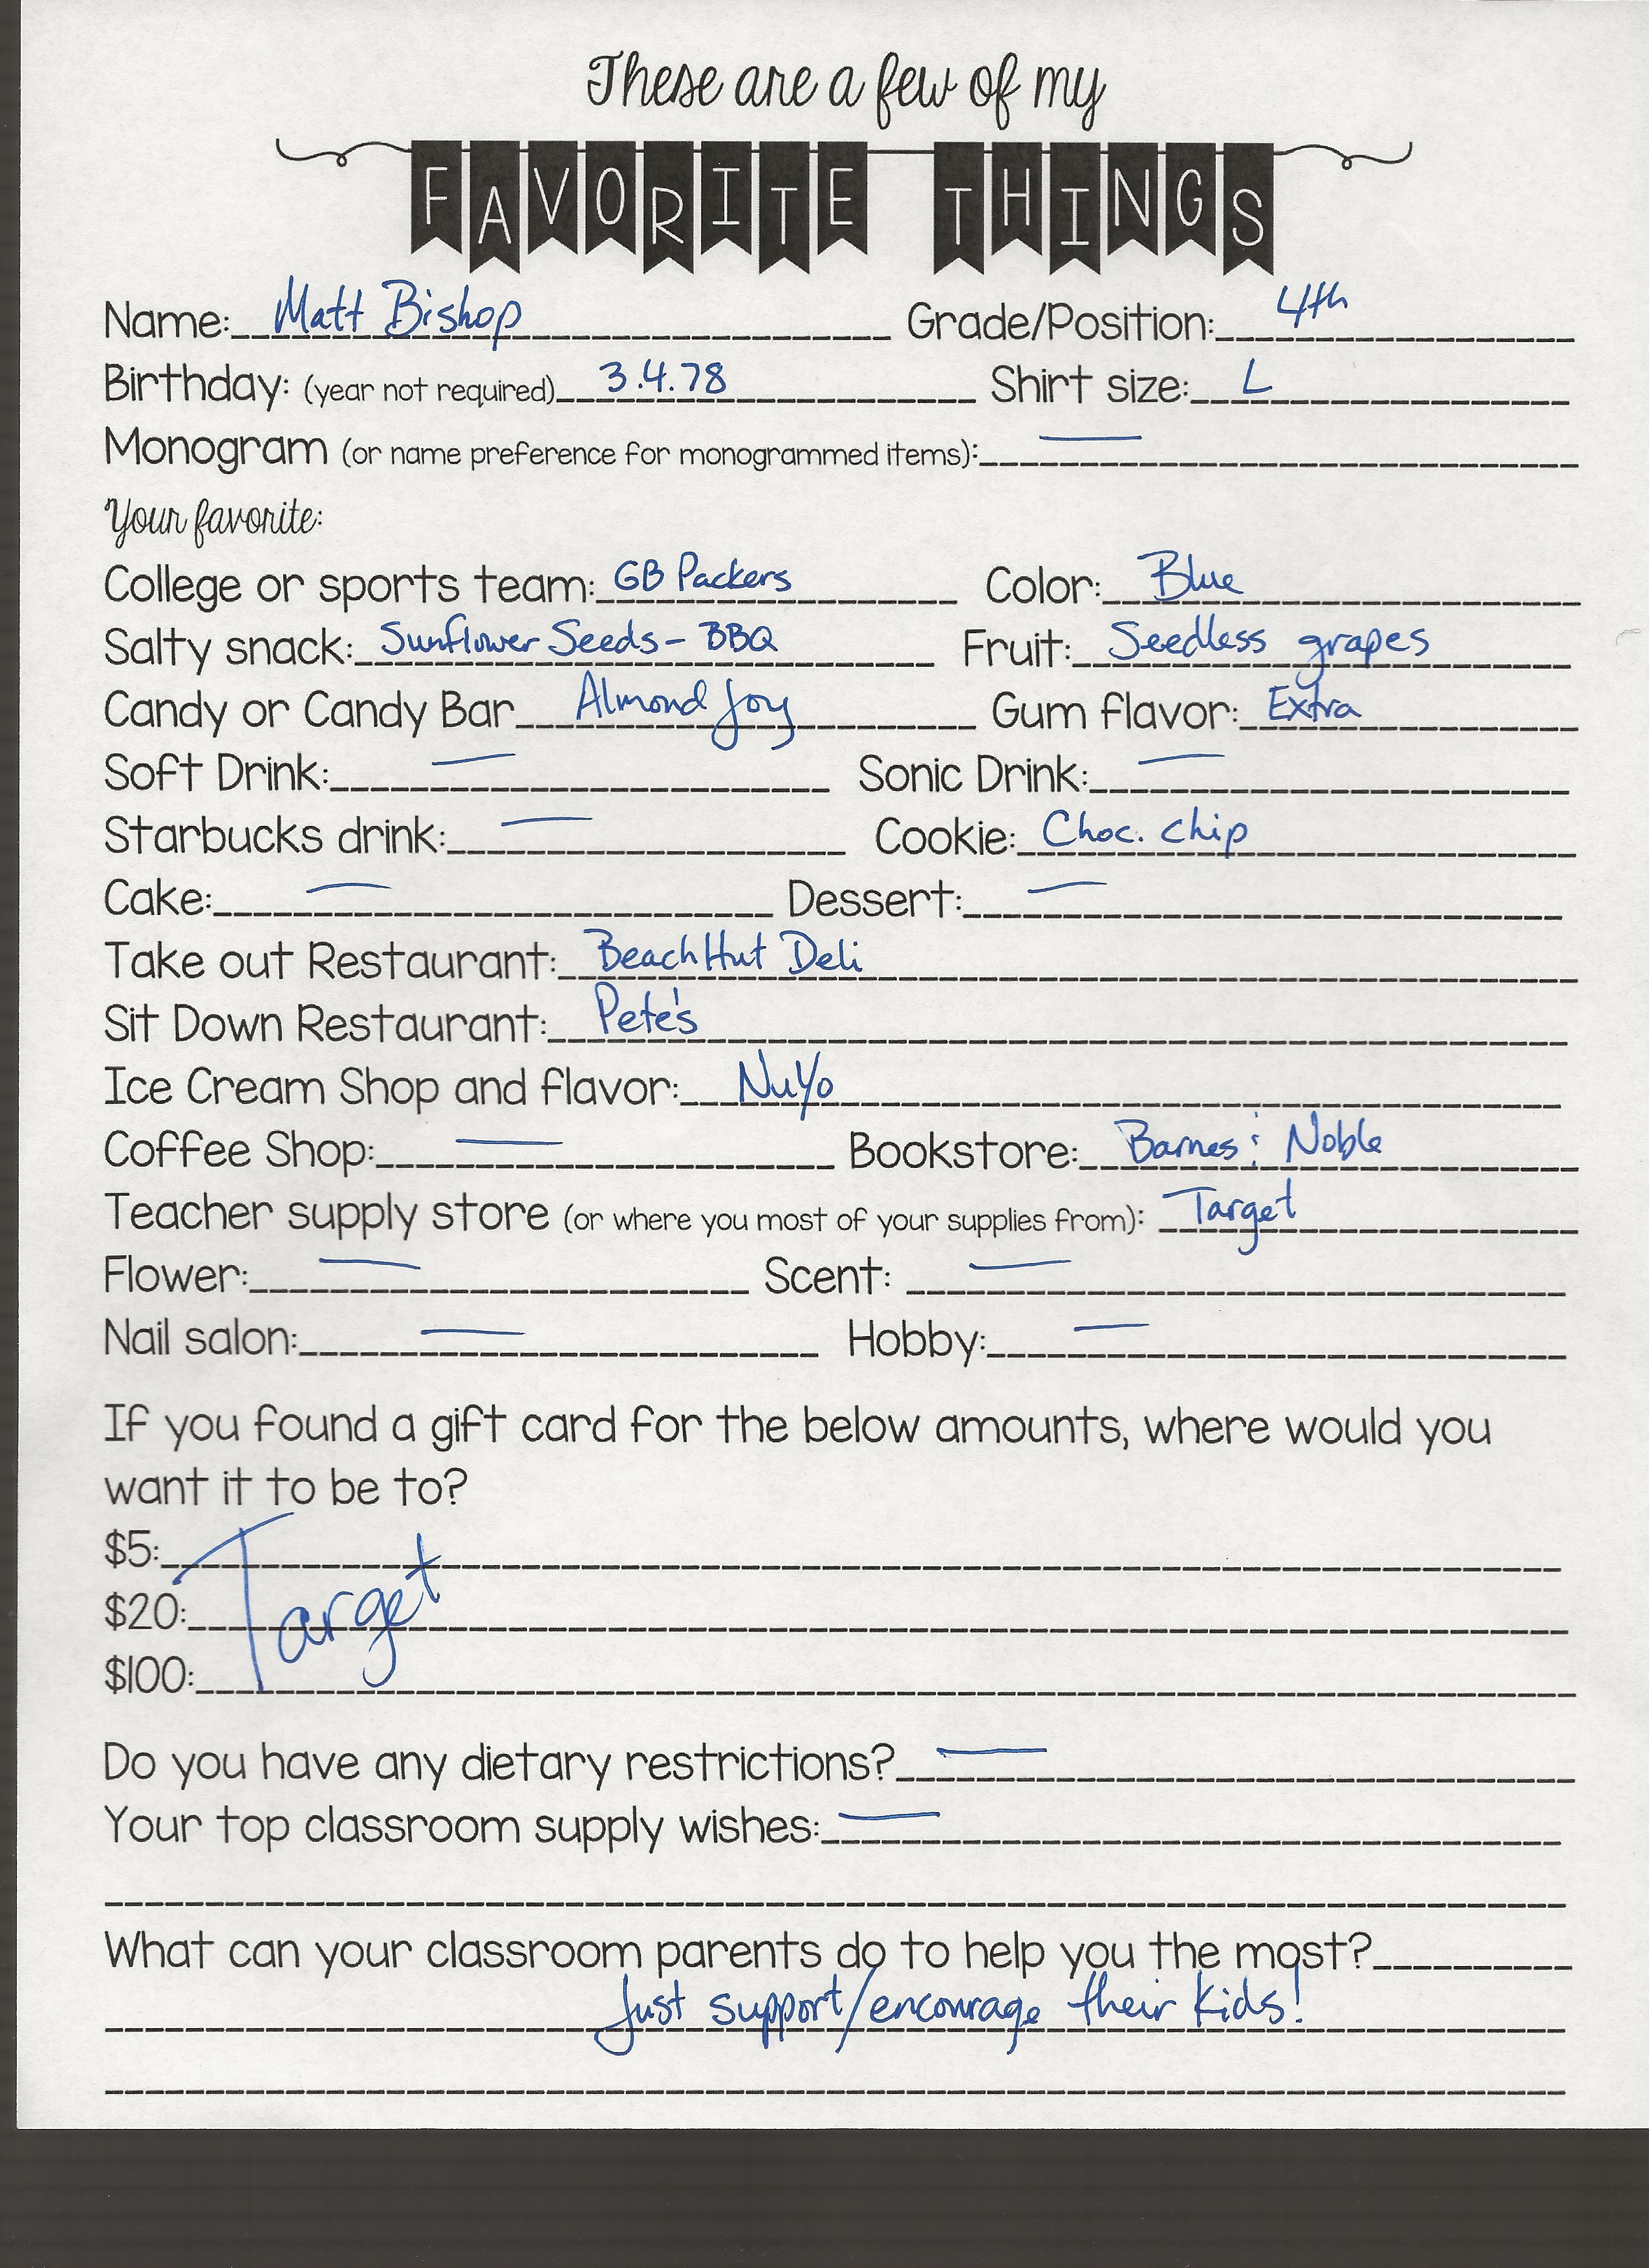 These are a few of my
FAVORITE THINGS
Name: Matt Bishop Grade/Position: 4th
Birthday: (year not required) 3.4.78 Shirt size: L
Monogram (or name preference for monogrammed items): —
Your favorite:
College or sports team: GB Packers Color: Blue
Salty snack: Sunflower Seeds - BBQ Fruit: Seedless grapes
Candy or Candy Bar Almond Joy Gum flavor: Extra
Soft Drink: — Sonic Drink: —
Starbucks drink: — Cookie: Choc. chip
Cake: — Dessert: —
Take out Restaurant: Beach Hut Deli
Sit Down Restaurant: Pete's
Ice Cream Shop and flavor: NuYo
Coffee Shop: — Bookstore: Barnes & Noble
Teacher supply store (or where you most of your supplies from): Target
Flower: — Scent: —
Nail salon: — Hobby: —
If you found a gift card for the below amounts, where would you
want it to be to?
$5:
$20: Target
$100:
Do you have any dietary restrictions? —
Your top classroom supply wishes: —
What can your classroom parents do to help you the most?
Just support/encourage their kids!